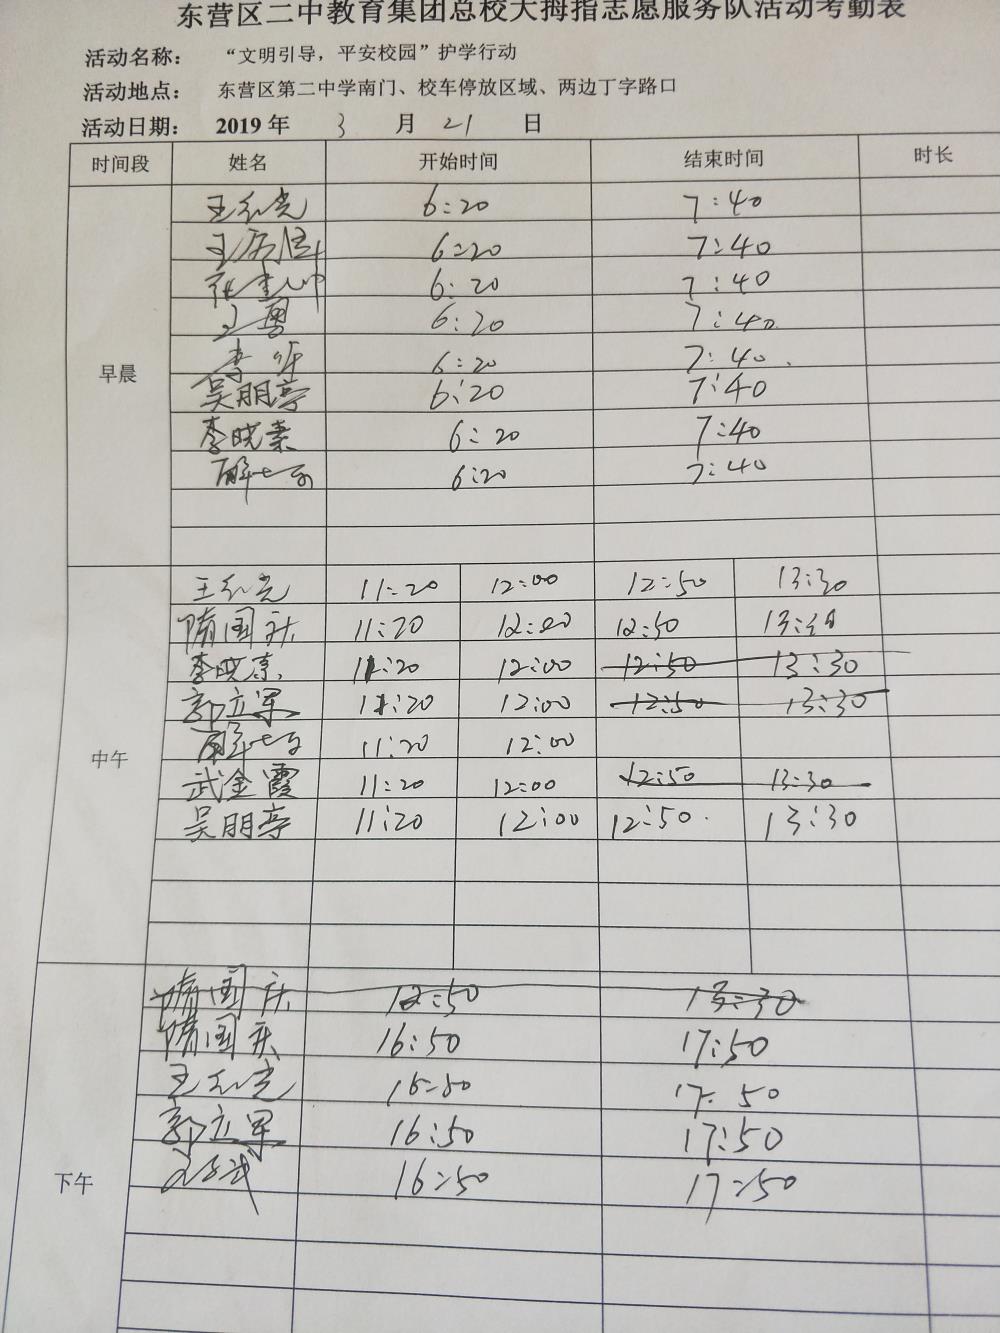 东营区二中教育集团总校大拇指志愿服务队活动考勤表
活动名称： “文明引导，平安校园”护学行动
活动地点： 东营区第二中学南门、校车停放区域、两边丁字路口
活动日期： 2019 年 3 月 21 日
时间段 姓名 开始时间 结束时间 时长
早晨
王红光 6:20 7:40
6:20 7:40
6:20 7:40
王勇 6:20 7:40
李 6:20 7:40
吴朋亭 6:20 7:40
李晓素 6:20 7:40
6:20 7:40
中午
王红光 11:20 12:00 12:50 13:30
隋国庆 11:20 12:00 12:50
李晓素 11:20 12:00 12:50 13:30
郭立军 11:20 12:00 12:50 13:30
11:20 12:00
武金霞 11:20 12:00 12:50 13:30
吴朋亭 11:20 12:00 12:50 13:30
下午
隋国庆 12:50 13:30
隋国庆 16:50 17:50
王红光 16:50 17:50
郭立军 16:50 17:50
16:50 17:50